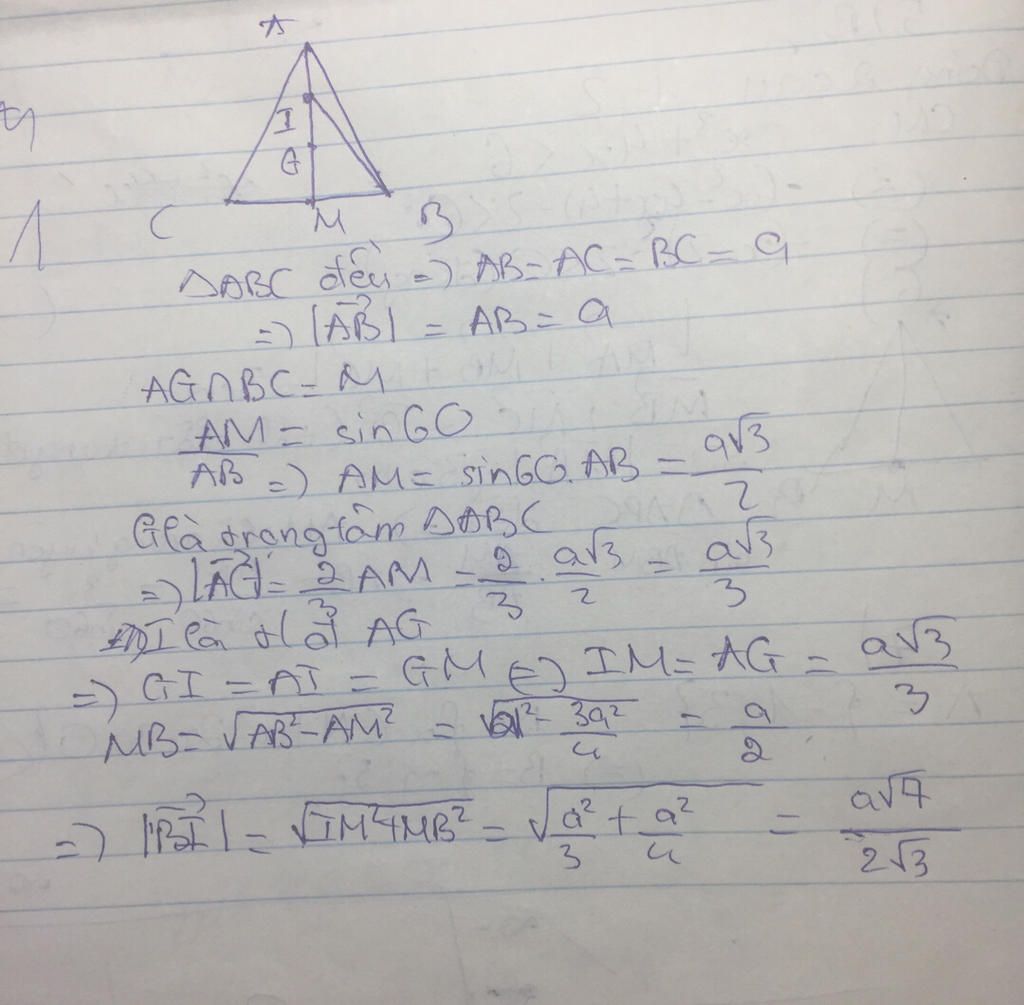 A
I
G
C M B
1
ΔABC đều => AB = AC = BC = a
=> |AB→| = AB = a
AG∩BC = M
AM/AB = sin60
=> AM = sin60.AB = a√3/2
G là trọng tâm ΔABC
=> |AG→| = 2/3 AM = 2/3 . a√3/2 = a√3/3
I là AG
=> GI = AI = GM <=> IM = AG = a√3/3
MB = √(AB² - AM²) = √(a² - 3a²/4) = a/2
=> |BI→| = √(IM² + MB²) = √(a²/3 + a²/4) = a√7/2√3